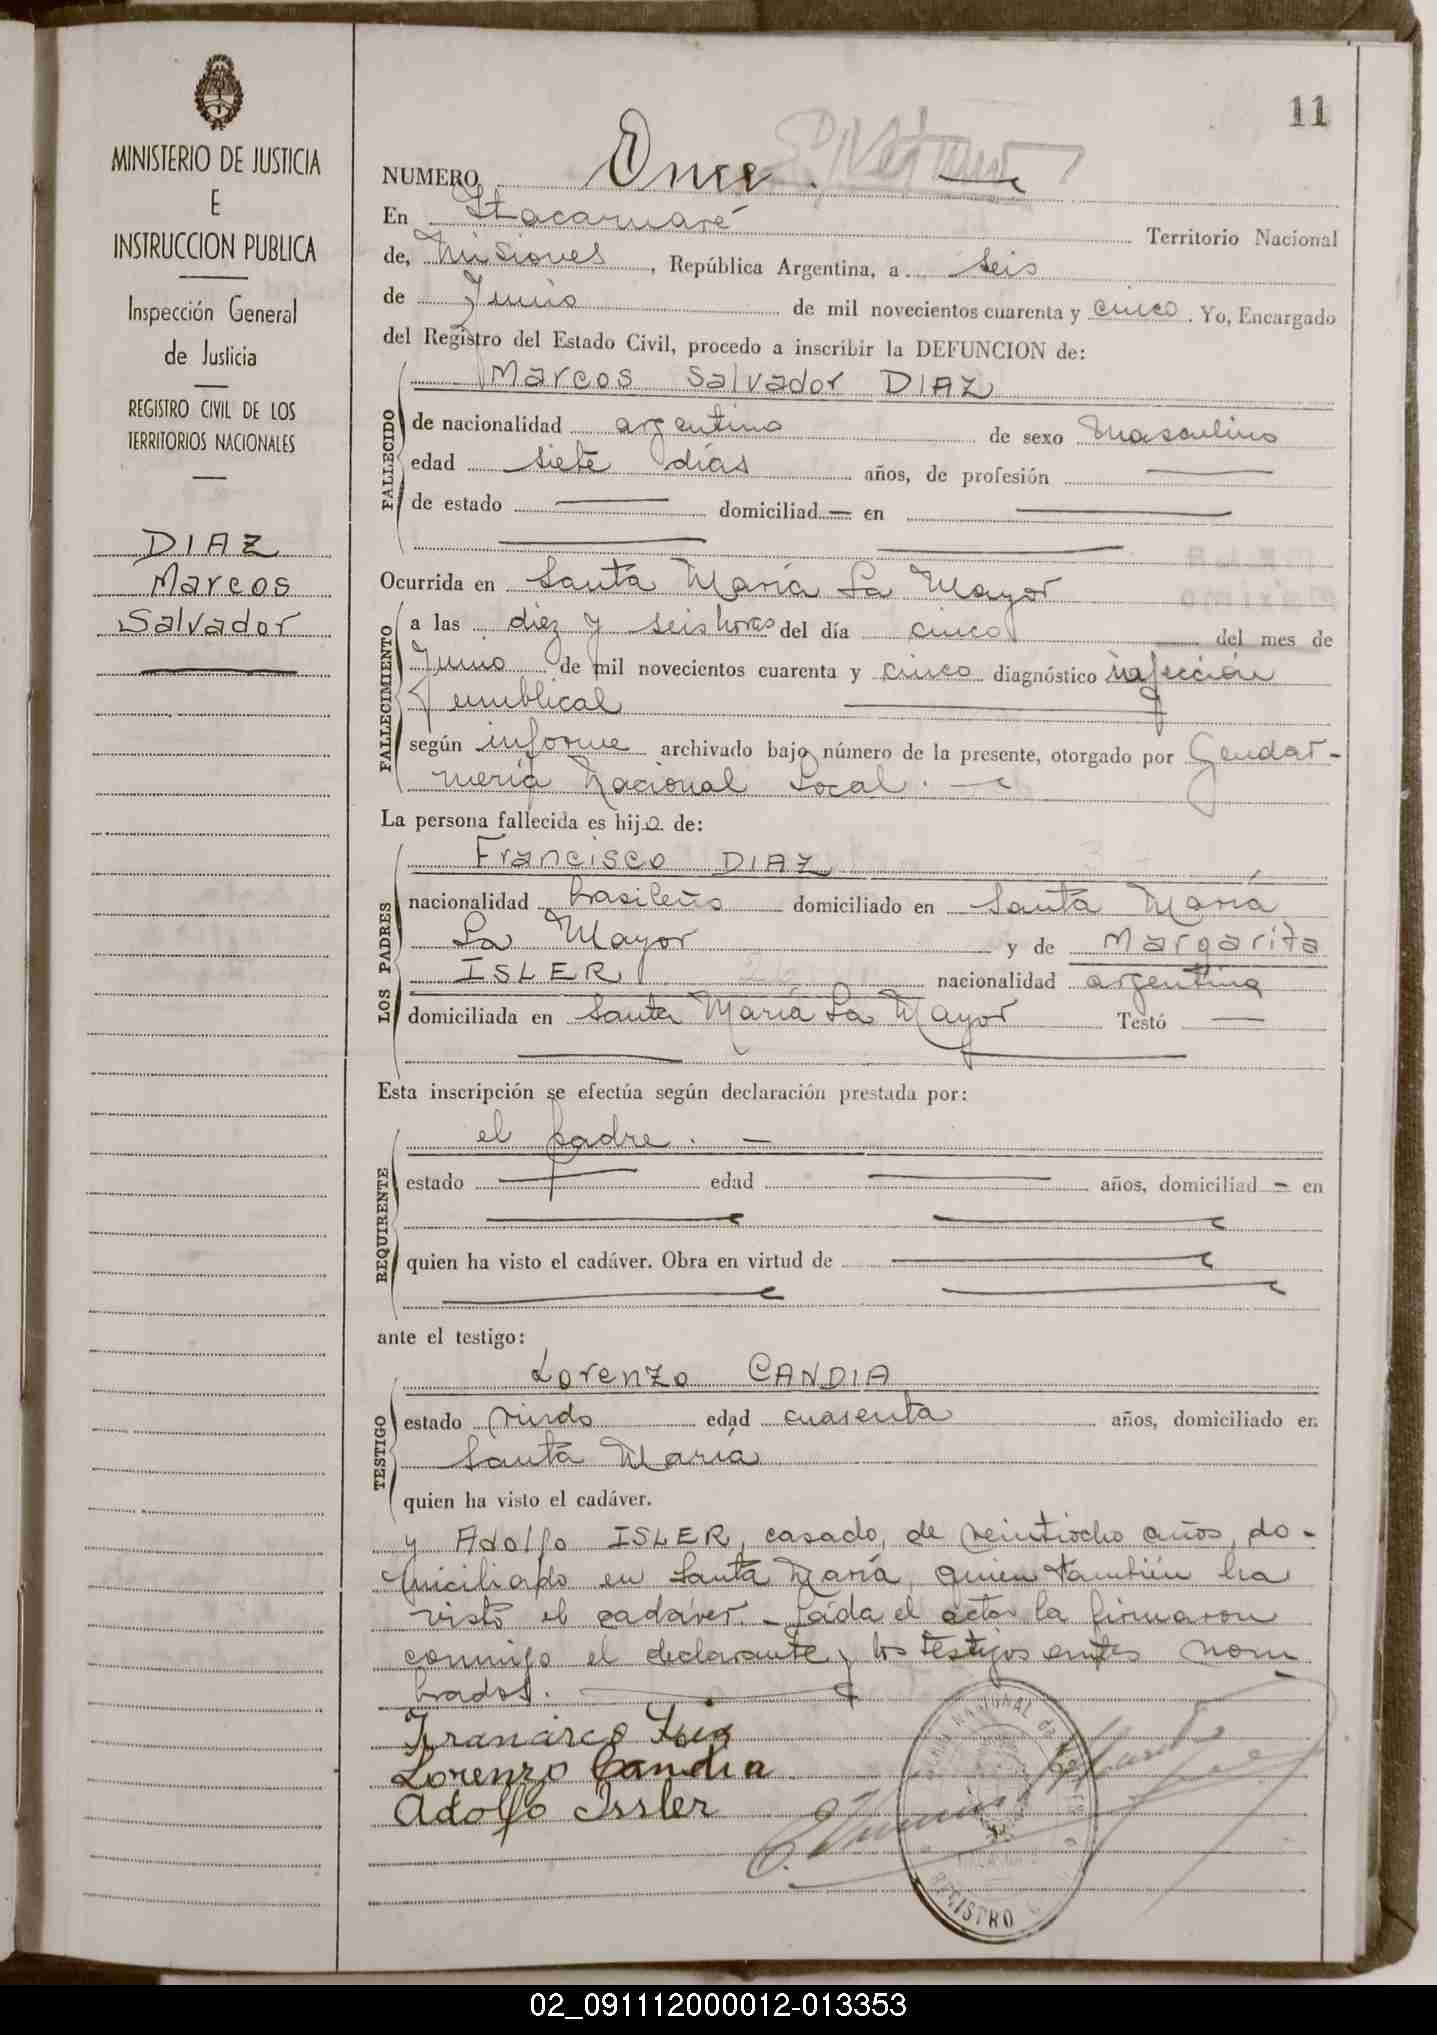 11
MINISTERIO DE JUSTICIA
E
INSTRUCCION PUBLICA
Inspección General
de Justicia
REGISTRO CIVIL DE LOS
TERRITORIOS NACIONALES
DIAZ
Marcos
Salvador
NUMERO Once.
En Itacaruaré Territorio Nacional
de, Misiones, República Argentina, a seis
de Junio de mil novecientos cuarenta y cinco. Yo, Encargado
del Registro del Estado Civil, procedo a inscribir la DEFUNCION de:
Marcos Salvador DIAZ
FALLECIDO
de nacionalidad argentino de sexo Masculino
edad siete días años, de profesión —
de estado — domiciliad — en —
Ocurrida en Santa María La Mayor
FALLECIMIENTO
a las diez y seis horas del día cinco del mes de
Junio de mil novecientos cuarenta y cinco diagnóstico infección
umblical
según informe archivado bajo número de la presente, otorgado por Gendar-
mería Nacional Local. —
La persona fallecida es hijo de:
LOS PADRES
Francisco DIAZ
nacionalidad brasileño domiciliado en Santa María
La Mayor y de Margarita
ISLER nacionalidad argentina
domiciliada en Santa María La Mayor Testó —
Esta inscripción se efectúa según declaración prestada por:
REQUIRENTE
el padre. —
estado — edad — años, domiciliad — en
quien ha visto el cadáver. Obra en virtud de —
ante el testigo:
TESTIGO
Lorenzo CANDIA
estado viudo edad cuarenta años, domiciliado en
Santa María
quien ha visto el cadáver.
y Adolfo ISLER, casado, de veintiocho años, do-
miciliado en Santa María, quien también ha
visto el cadáver. - Leída el acta la firmaron
conmigo el declarante y los testigos antes nom
brados.
Francisco
Lorenzo Candia
Adolfo Issler
NACIONAL de
REGISTRO
02_091112000012-013353